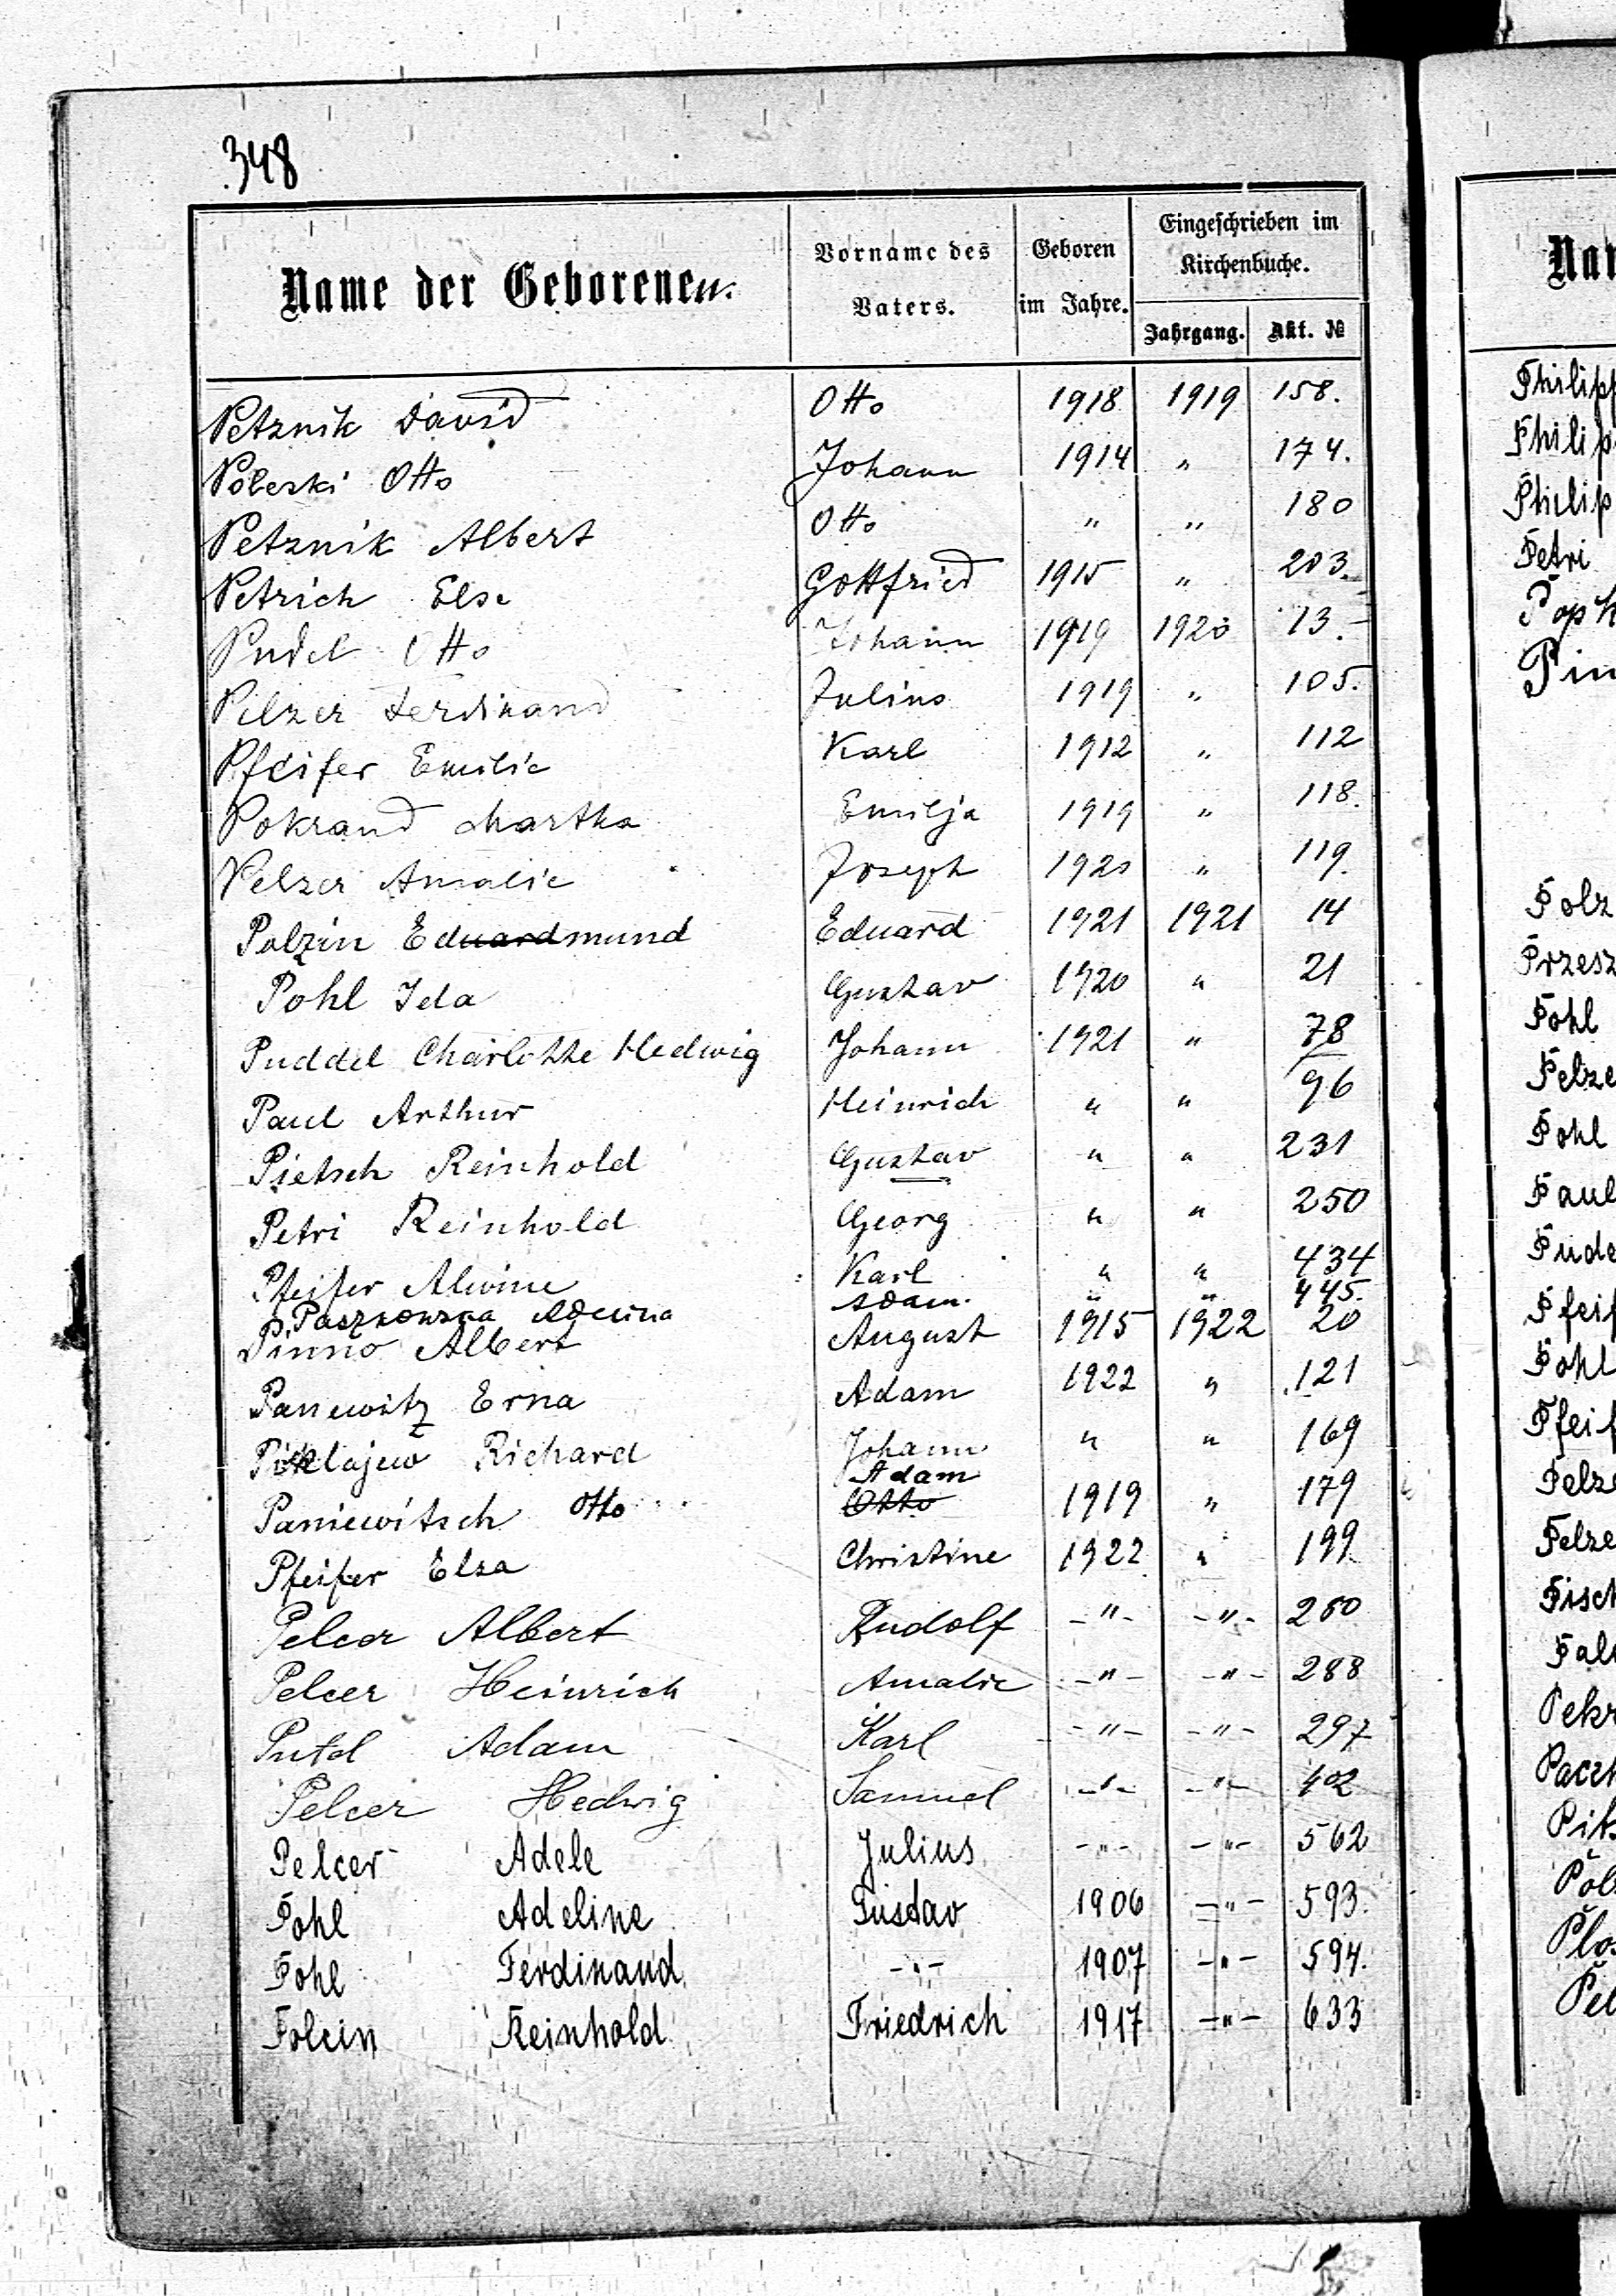 348
Name der Geborenen.
Vorname des Vaters.
Geboren im Jahre.
Eingeschrieben im Kirchenbuche.
Jahrgang.
Akt. №
Petznik David Otto 1918 1919 158.
Poleski Otto Johann 1914 " 174.
Petznik Albert Otto " " 180
Petrich Else Gottfried 1915 " 203.
Pudel Otto Johann 1919 1920 13.
Pelzer Ferdinand Julius 1919 " 105.
Pfeifer Emilie Karl 1912 " 112
Pokrand Martha Emilja 1919 " 118.
Pelzer Amalie Joseph 1920 " 119.
Polzin Eduardmund Eduard 1921 1921 14
Pohl Ida Gustav 1920 " 21
Puddel Charlotte Hedwig Johann 1921 " 78
Paul Arthur Heinrich " " 96
Pietsch Reinhold Gustav " " 231
Petri Reinhold Georg " " 250
Pfeifer Alwine Karl " " 434
Adam " " 445.
Pinno Albert August 1915 1922 20
Panewitz Erna Adam 1922 " 121
Richard Johann " " 169
Paniewitsch Otto Adam Otto 1919 " 179
Pfeifer Elsa Christine 1922 " 199
Pelcer Albert Rudolf -"- -"- 260
Pelcer Heinrich Amalie -"- -"- 288
Putel Adam Karl -"- -"- 297
Pelcer Hedwig Samuel -"- -"- 402
Pelcer Adele Julius -"- -"- 562
Pohl Adeline Gustav 1906 -"- 593.
Pohl Ferdinand -"- 1907 -"- 594.
Polcin Reinhold Friedrich 1917 -"- 633
Nar
Philipp
Philip
Philip
Petri
Pin
Polz
Przesz
Pohl
Pelze
Pohl
Paul
Pude
Pfeif
Pohl
Pfeif
Pelze
Pelze
Fisch